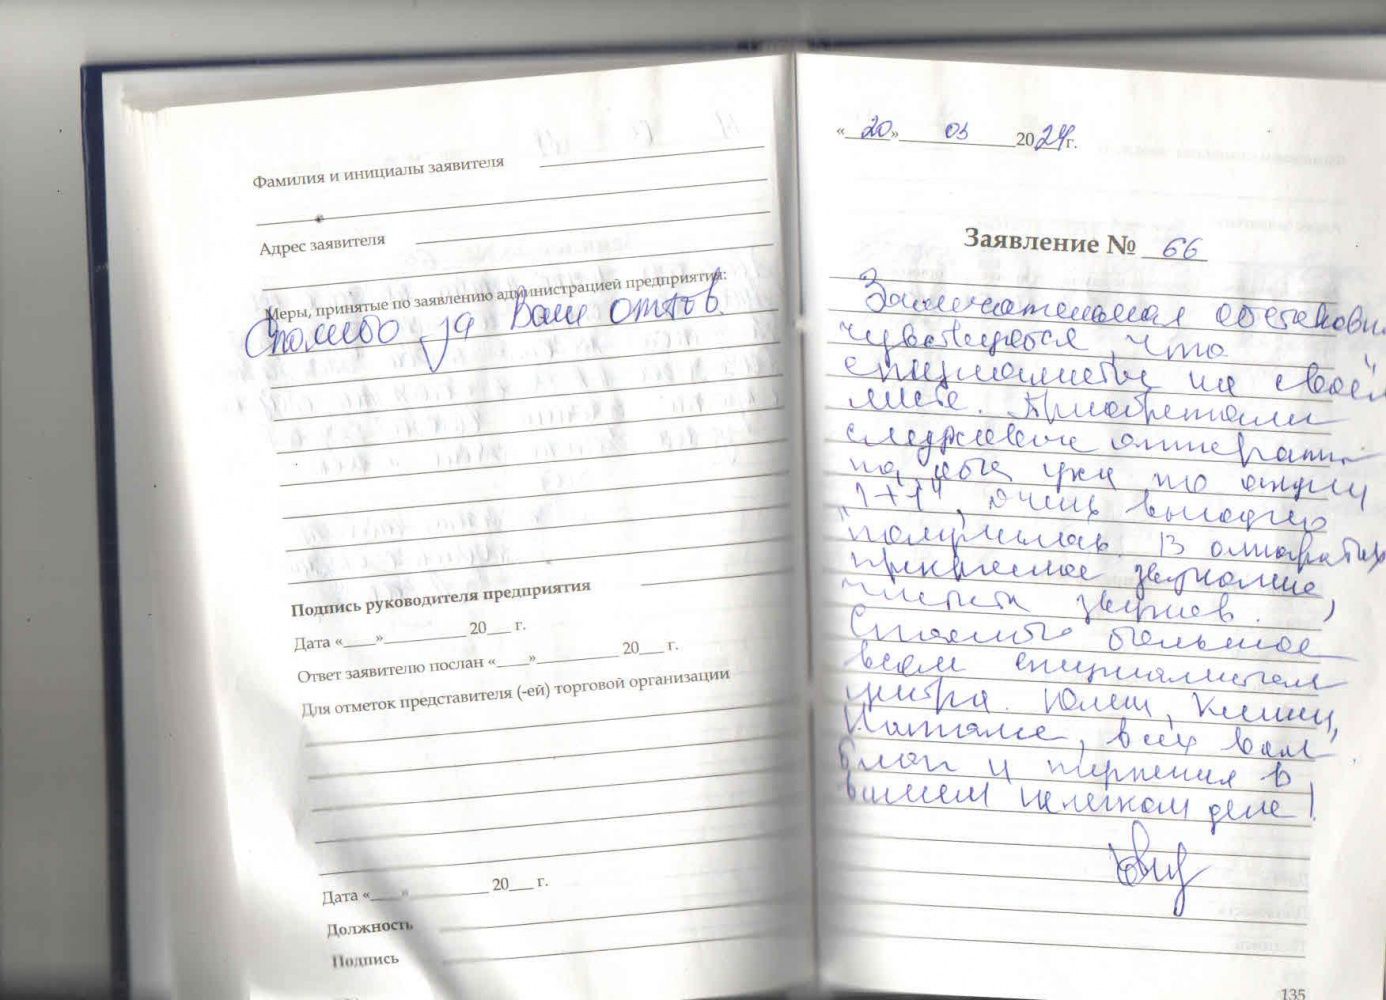 Фамилия и инициалы заявителя
Адрес заявителя
Меры, принятые по заявлению администрацией предприятия:
Спасибо за Ваш отзыв.
Подпись руководителя предприятия
Дата «___»__________ 20___ г.
Ответ заявителю послан «___»__________ 20___ г.
Для отметок представителя (-ей) торговой организации
Дата «___»__________ 20___ г.
Должность
Подпись
«20» 03 2024г.
Заявление № 66
Замечательная обстановка
чувствуется, что
специалисты на своём
месте. Приобретали
аппараты
по акции
"1+1", очень выгодно
получилось. В аппаратах
прекрасное звучание,
чистота звуков.
Спасибо большое
всем специалистам
центра. Юлии,
Наталье, всех вам
благ и терпения в
вашем нелегком деле!
135